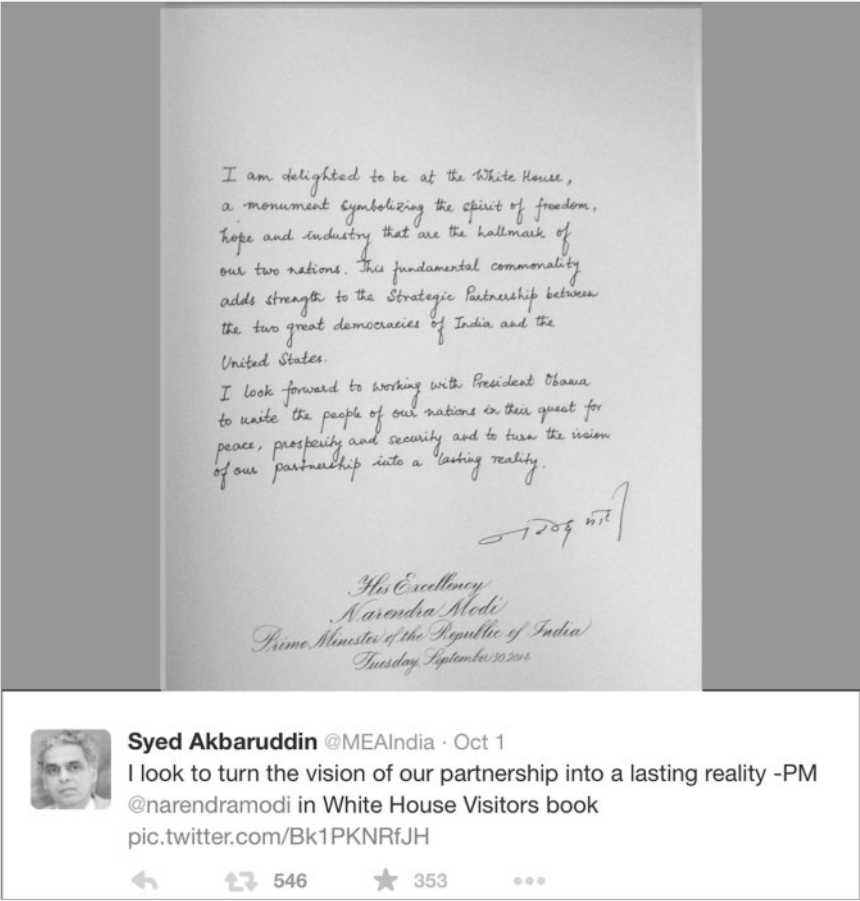 I am delighted to be at the White House,
a monument symbolizing the spirit of freedom,
hope and industry that are the hallmark of
our two nations. This fundamental commonality
adds strength to the Strategic Partnership between
the two great democracies of India and the
United States.
I look forward to working with President Obama
to unite the people of our nations in their quest for
peace, prosperity and security and to turn the vision
of our partnership into a lasting reality.
नरेन्द्र मोदी
His Excellency
Narendra Modi
Prime Minister of the Republic of India
Tuesday, September 30, 2014
Syed Akbaruddin @MEAIndia · Oct 1
I look to turn the vision of our partnership into a lasting reality -PM
@narendramodi in White House Visitors book
pic.twitter.com/Bk1PKNRfJH
546 353